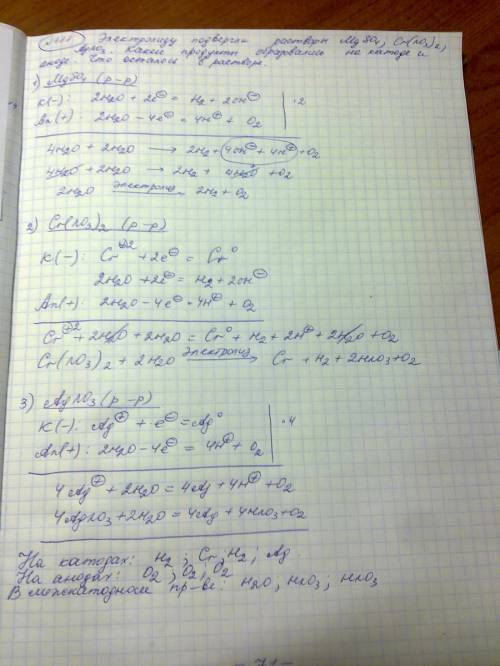 Электролизу подвергли растворы MgSO₄, Cr(NO₃)₂,
AgNO₃. Какие продукты образовались на катоде и
аноде. Что осталось в растворе.
1) MgSO₄ (р-р)
K(-): 2H₂O + 2e⊖ = H₂ + 2OH⊖ | ·2
An(+): 2H₂O - 4e⊖ = 4H⊕ + O₂
4H₂O + 2H₂O → 2H₂ + 4OH⊖ + 4H⊕ + O₂
4H₂O + 2H₂O → 2H₂ + 4H₂O + O₂
2H₂O электролиз 2H₂ + O₂
2) Cr(NO₃)₂ (р-р)
K(-): Cr⁺² + 2e⊖ = Cr⁰
2H₂O + 2e⊖ = H₂ + 2OH⊖
An(+): 2H₂O - 4e⊖ = 4H⊕ + O₂
Cr⁺² + 2H₂O + 2H₂O = Cr⁰ + H₂ + 2H⊕ + 2H₂O + O₂
Cr(NO₃)₂ + 2H₂O электролиз → Cr + H₂ + 2HNO₃ + O₂
3) AgNO₃ (р-р)
K(-): Ag⊕ + e⊖ = Ag⁰ | ·4
An(+): 2H₂O - 4e⊖ = 4H⊕ + O₂
4Ag⊕ + 2H₂O = 4Ag + 4H⊕ + O₂
4AgNO₃ + 2H₂O = 4Ag + 4HNO₃ + O₂
На катодах: H₂; Cr, H₂; Ag
На анодах: O₂; O₂; O₂
В межкатодном пр-ве: H₂O, HNO₃; HNO₃